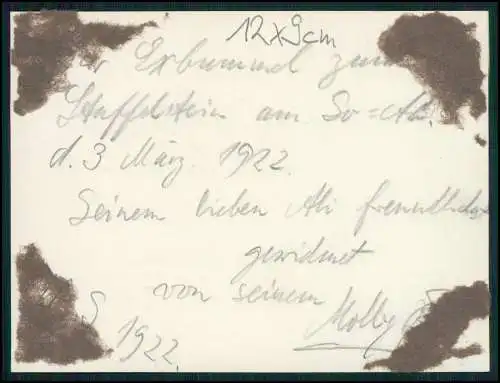 12x9cm
Erbummel zum
Staffelstein am So=Ab.
d. 3 März. 1922.
Seinem lieben Ali freundlichst
gewidmet
von seinem Molly
S 1922.